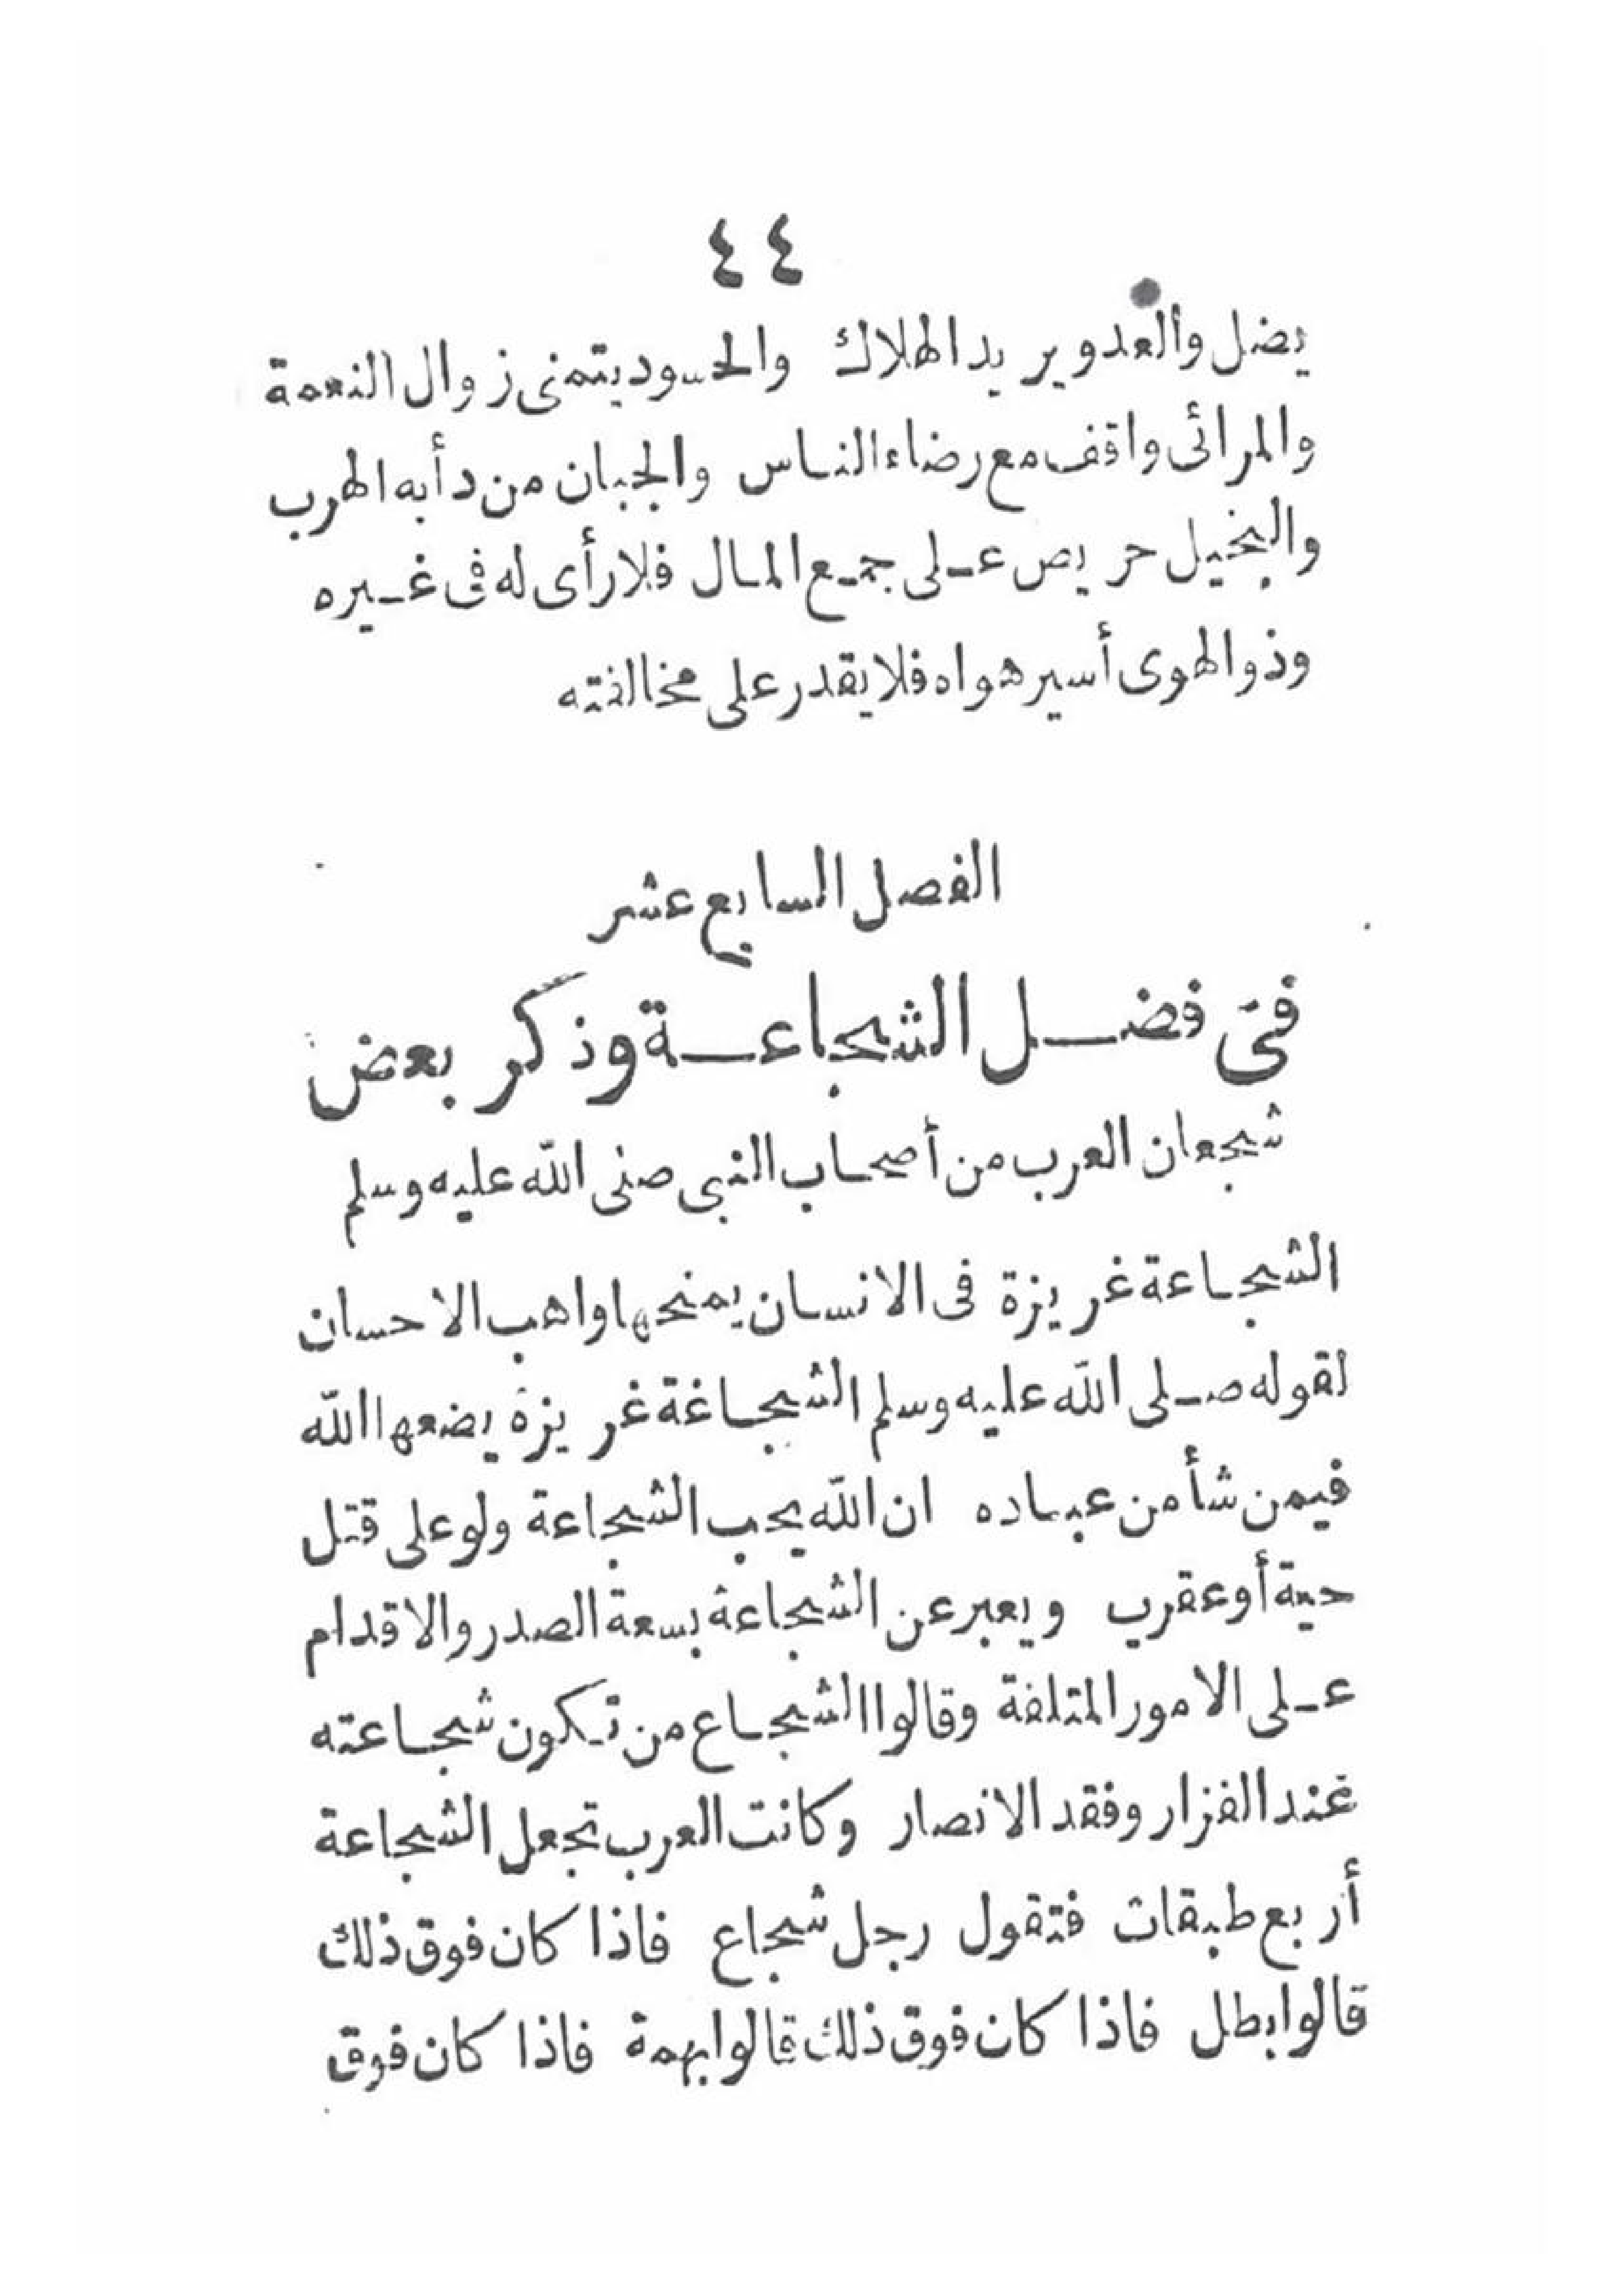 ٤٤
يضل والعدو يريد الهلاك والحسود يتمنى زوال النعمة
والمرائى واقف مع رضاء الناس والجبان من دأبه الهرب
والبخيل حريص على جمع المال فلا رأى له فى غيره
وذو الهوى أسير هواه فلا يقدر على مخالفته
الفصل السابع عشر
فى فضل الشجاعة وذكر بعض
شجعان العرب من أصحاب النبى صلى الله عليه وسلم
الشجاعة غريزة فى الانسان يمنحها واهب الاحسان
لقوله صلى الله عليه وسلم الشجاغة غريزة يضعها الله
فيمن شأ من عباده ان الله يحب الشجاعة ولو على قتل
حية أو عقرب ويعبر عن الشجاعة بسعة الصدر والاقدام
على الامور المتلفة وقالوا الشجاع من تكون شجاعته
عند الفرار وفقد الانصار وكانت العرب تجعل الشجاعة
أربع طبقات فتقول رجل شجاع فاذا كان فوق ذلك
قالوا بطل فاذا كان فوق ذلك قالوا بهمة فاذا كان فوق